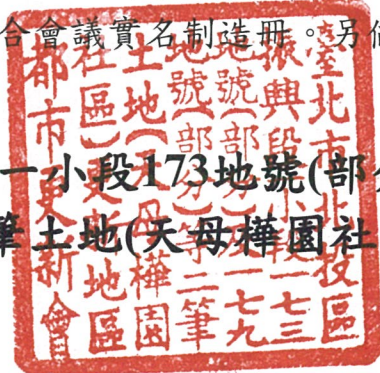 合會議實名制造冊。另倘
一小段173地號(部分
筆土地(天母樺園社
臺北市北投區
振興段一小段一七三
地號(部分)及一七九
地號(部分)等二筆
土地(天母樺園
社區)更新地區
都市更新會